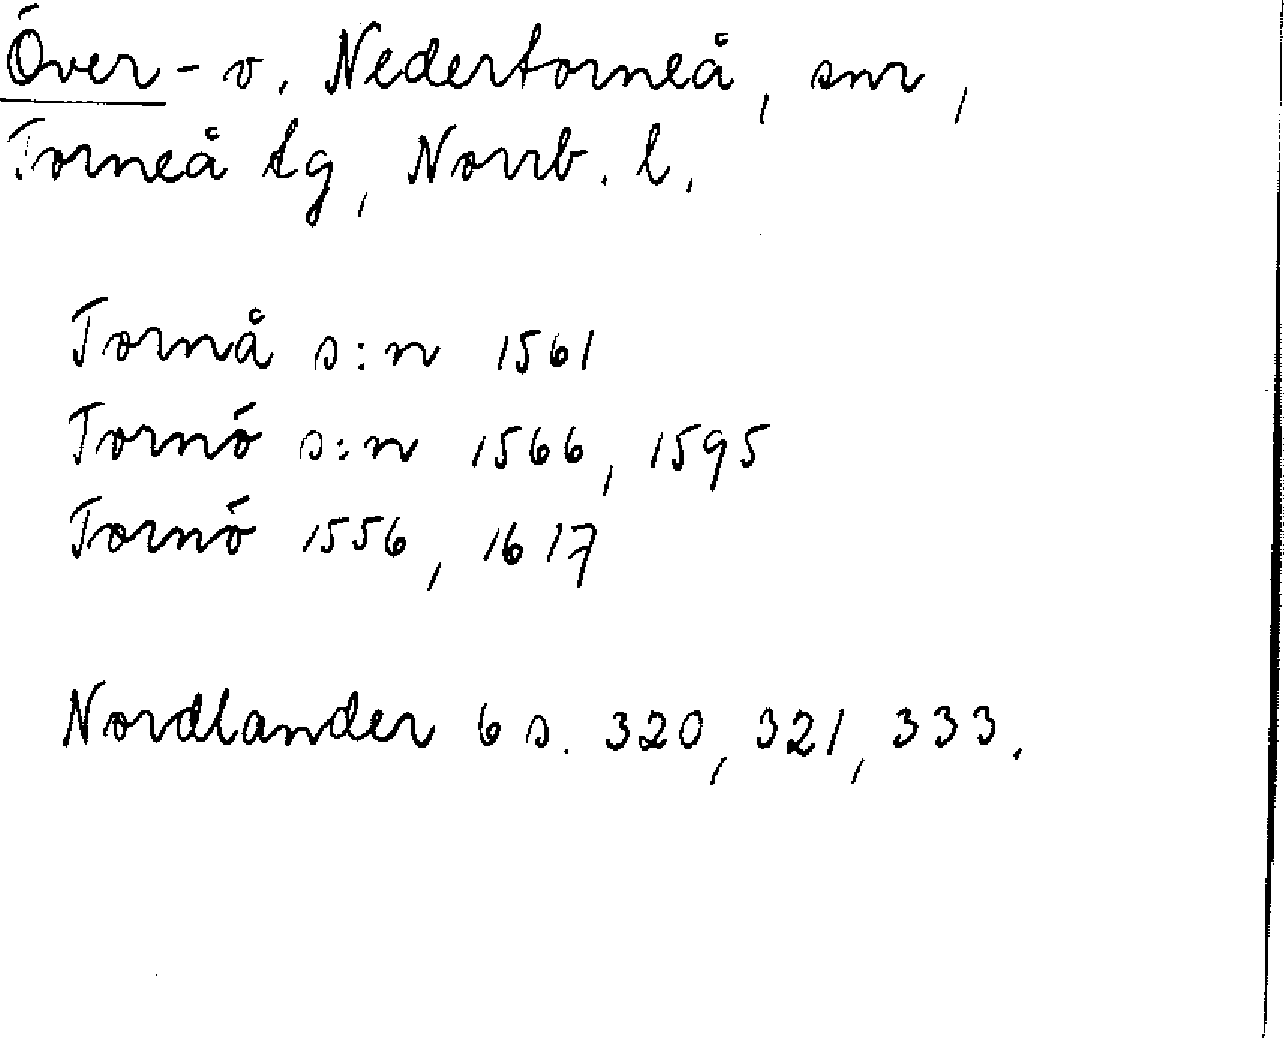 Över- o. Nedertorneå, snr,
Torneå tg, Norrb. l.
Tornå s:n 1561
Tornö s:n 1566, 1595
Tornö 1556, 1617
Nordlander 6 s. 320, 321, 333.